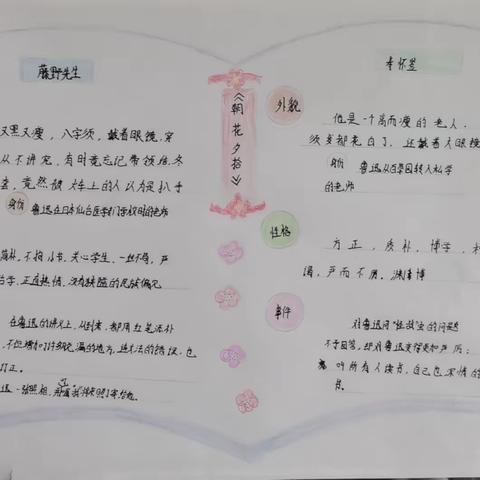 藤野先生
又黑又瘦，八字须，戴着眼镜，穿
从不讲究，有时竟忘记带领结，冬
竟然被火车上的人以为是扒手
身份 鲁迅在日本仙台医学专门学校时的老师
不拘小节，关心学生，一丝不苟，严
正直热情，没有狭隘的民族偏见
在鲁迅的讲义上，从到末，都用红笔添补
不但增加了许多脱漏的地方，连文法的错误，也
订正。
《朝花夕拾》
寿怀鉴
外貌
他是一个高而瘦的老人，
须发都花白了，还戴着大眼镜
身份 鲁迅从百草园转入私学
的老师
性格
方正，质朴，博学，
严而不厉，渊博
事件
对鲁迅问“怪哉”虫的问题
不予回答，却对鲁迅变得更加严厉；
听所有人读书，自己也深情的
书。